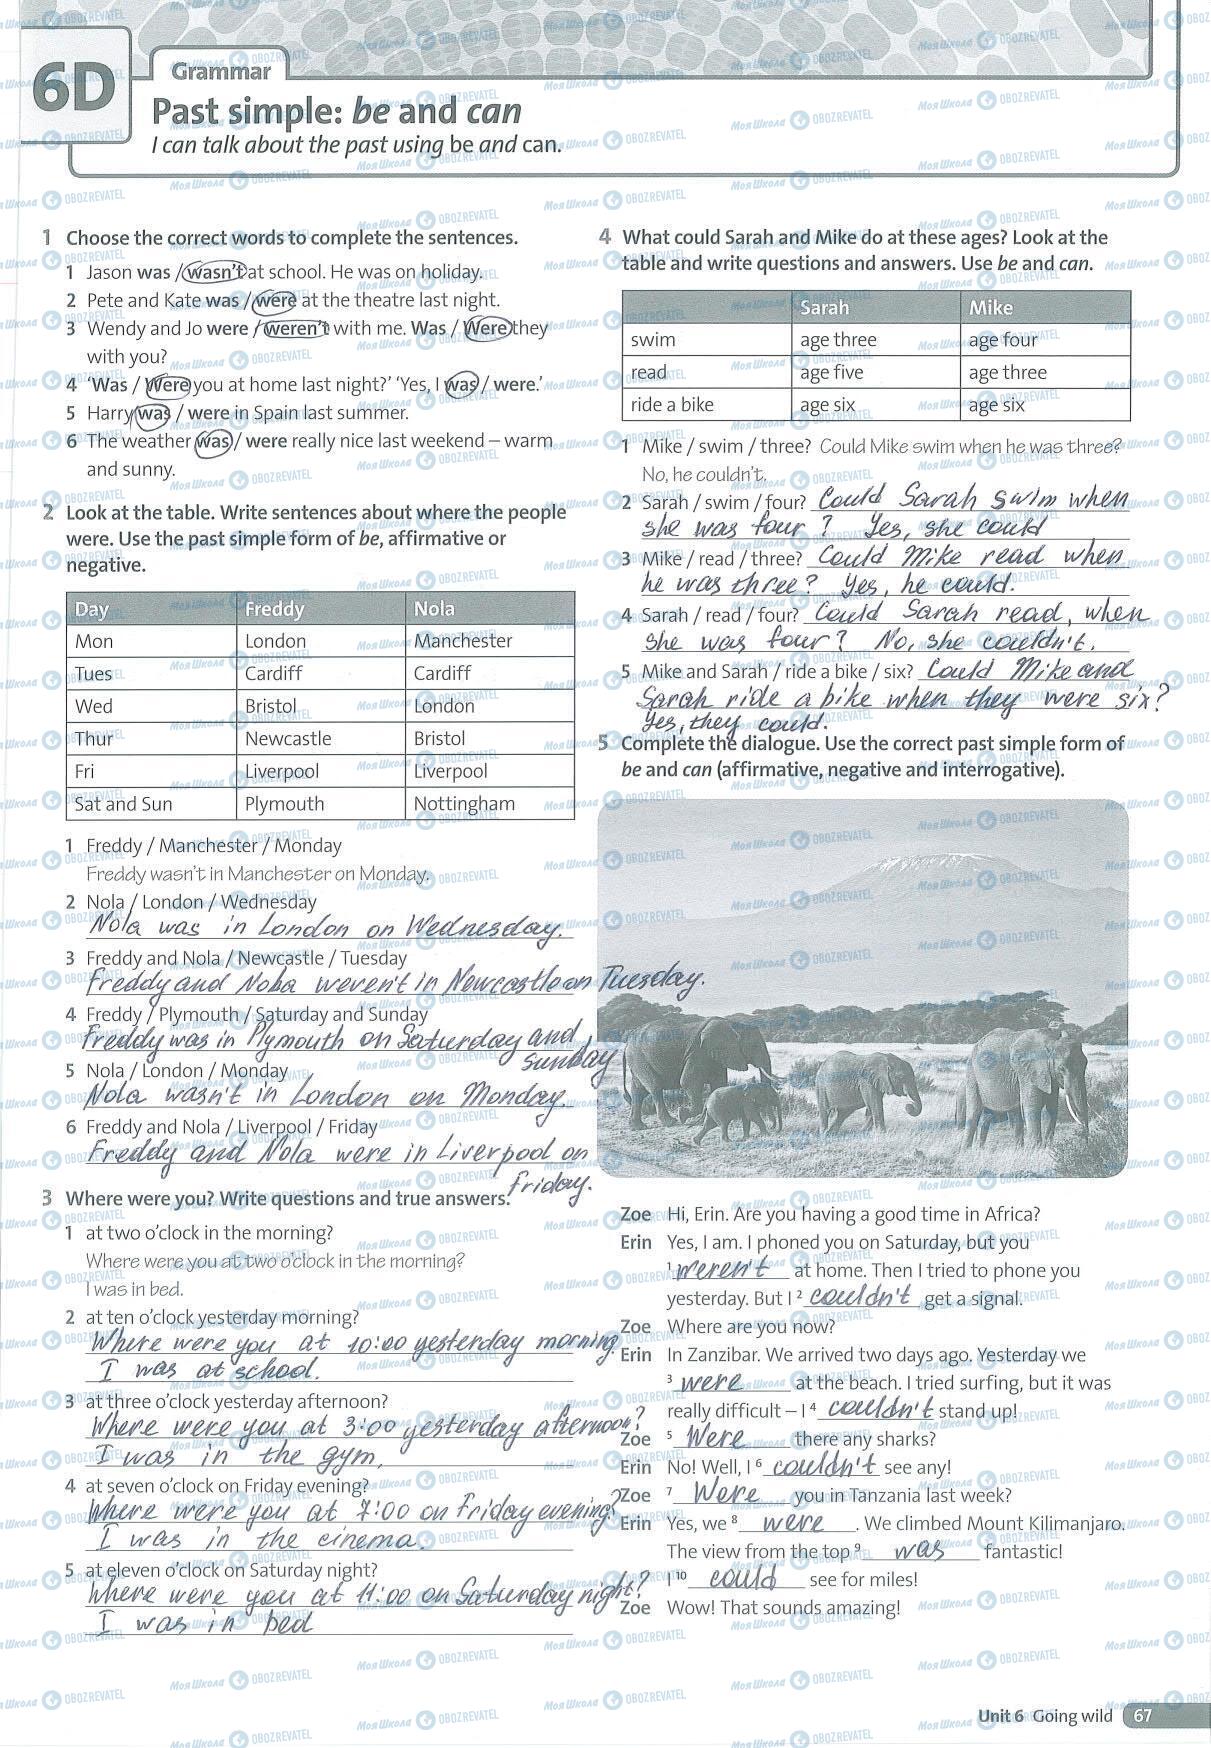 6D
Grammar
Past simple: be and can
I can talk about the past using be and can.
1 Choose the correct words to complete the sentences.
1 Jason was / wasn't at school. He was on holiday.
2 Pete and Kate was / were at the theatre last night.
3 Wendy and Jo were / weren't with me. Was / Were they
with you?
4 'Was / Were you at home last night?' 'Yes, I was / were.'
5 Harry was / were in Spain last summer.
6 The weather was / were really nice last weekend – warm
and sunny.
2 Look at the table. Write sentences about where the people
were. Use the past simple form of be, affirmative or
negative.
Day Freddy Nola
Mon London Manchester
Tues Cardiff Cardiff
Wed Bristol London
Thur Newcastle Bristol
Fri Liverpool Liverpool
Sat and Sun Plymouth Nottingham
1 Freddy / Manchester / Monday
Freddy wasn't in Manchester on Monday.
2 Nola / London / Wednesday
Nola was in London on Wednesday.
3 Freddy and Nola / Newcastle / Tuesday
Freddy and Nola weren't in Newcastle on Tuesday.
4 Freddy / Plymouth / Saturday and Sunday
Freddy was in Plymouth on Saturday and
Sunday
5 Nola / London / Monday
Nola wasn't in London on Monday.
6 Freddy and Nola / Liverpool / Friday
Freddy and Nola were in Liverpool on
Friday.
3 Where were you? Write questions and true answers.
1 at two o'clock in the morning?
Where were you at two o'clock in the morning?
I was in bed.
2 at ten o'clock yesterday morning?
Where were you at 10:00 yesterday morning.
I was at school.
3 at three o'clock yesterday afternoon?
Where were you at 3:00 yesterday afternoon?
I was in the gym,
4 at seven o'clock on Friday evening?
Where were you at 7:00 on Friday evening?
I was in the cinema.
5 at eleven o'clock on Saturday night?
Where were you at 11:00 on Saturday night?
I was in bed
4 What could Sarah and Mike do at these ages? Look at the
table and write questions and answers. Use be and can.
Sarah Mike
swim age three age four
read age five age three
ride a bike age six age six
1 Mike / swim / three? Could Mike swim when he was three?
No, he couldn't.
2 Sarah / swim / four? Could Sarah swim when
she was four? Yes, she could
3 Mike / read / three? Could Mike read when
he was three? Yes, he could.
4 Sarah / read / four? Could Sarah read, when
she was four? No, she couldn't.
5 Mike and Sarah / ride a bike / six? Could Mike and
Sarah ride a bike when they were six?
Yes, they could.
5 Complete the dialogue. Use the correct past simple form of
be and can (affirmative, negative and interrogative).
Zoe Hi, Erin. Are you having a good time in Africa?
Erin Yes, I am. I phoned you on Saturday, but you
1 weren't at home. Then I tried to phone you
yesterday. But I 2 couldn't get a signal.
Zoe Where are you now?
Erin In Zanzibar. We arrived two days ago. Yesterday we
3 were at the beach. I tried surfing, but it was
really difficult – I 4 couldn't stand up!
Zoe 5 Were there any sharks?
Erin No! Well, I 6 couldn't see any!
Zoe 7 Were you in Tanzania last week?
Erin Yes, we 8 were. We climbed Mount Kilimanjaro.
The view from the top 9 was fantastic!
I 10 could see for miles!
Zoe Wow! That sounds amazing!
Unit 6 Going wild 67
Моя Школа OBOZREVATEL